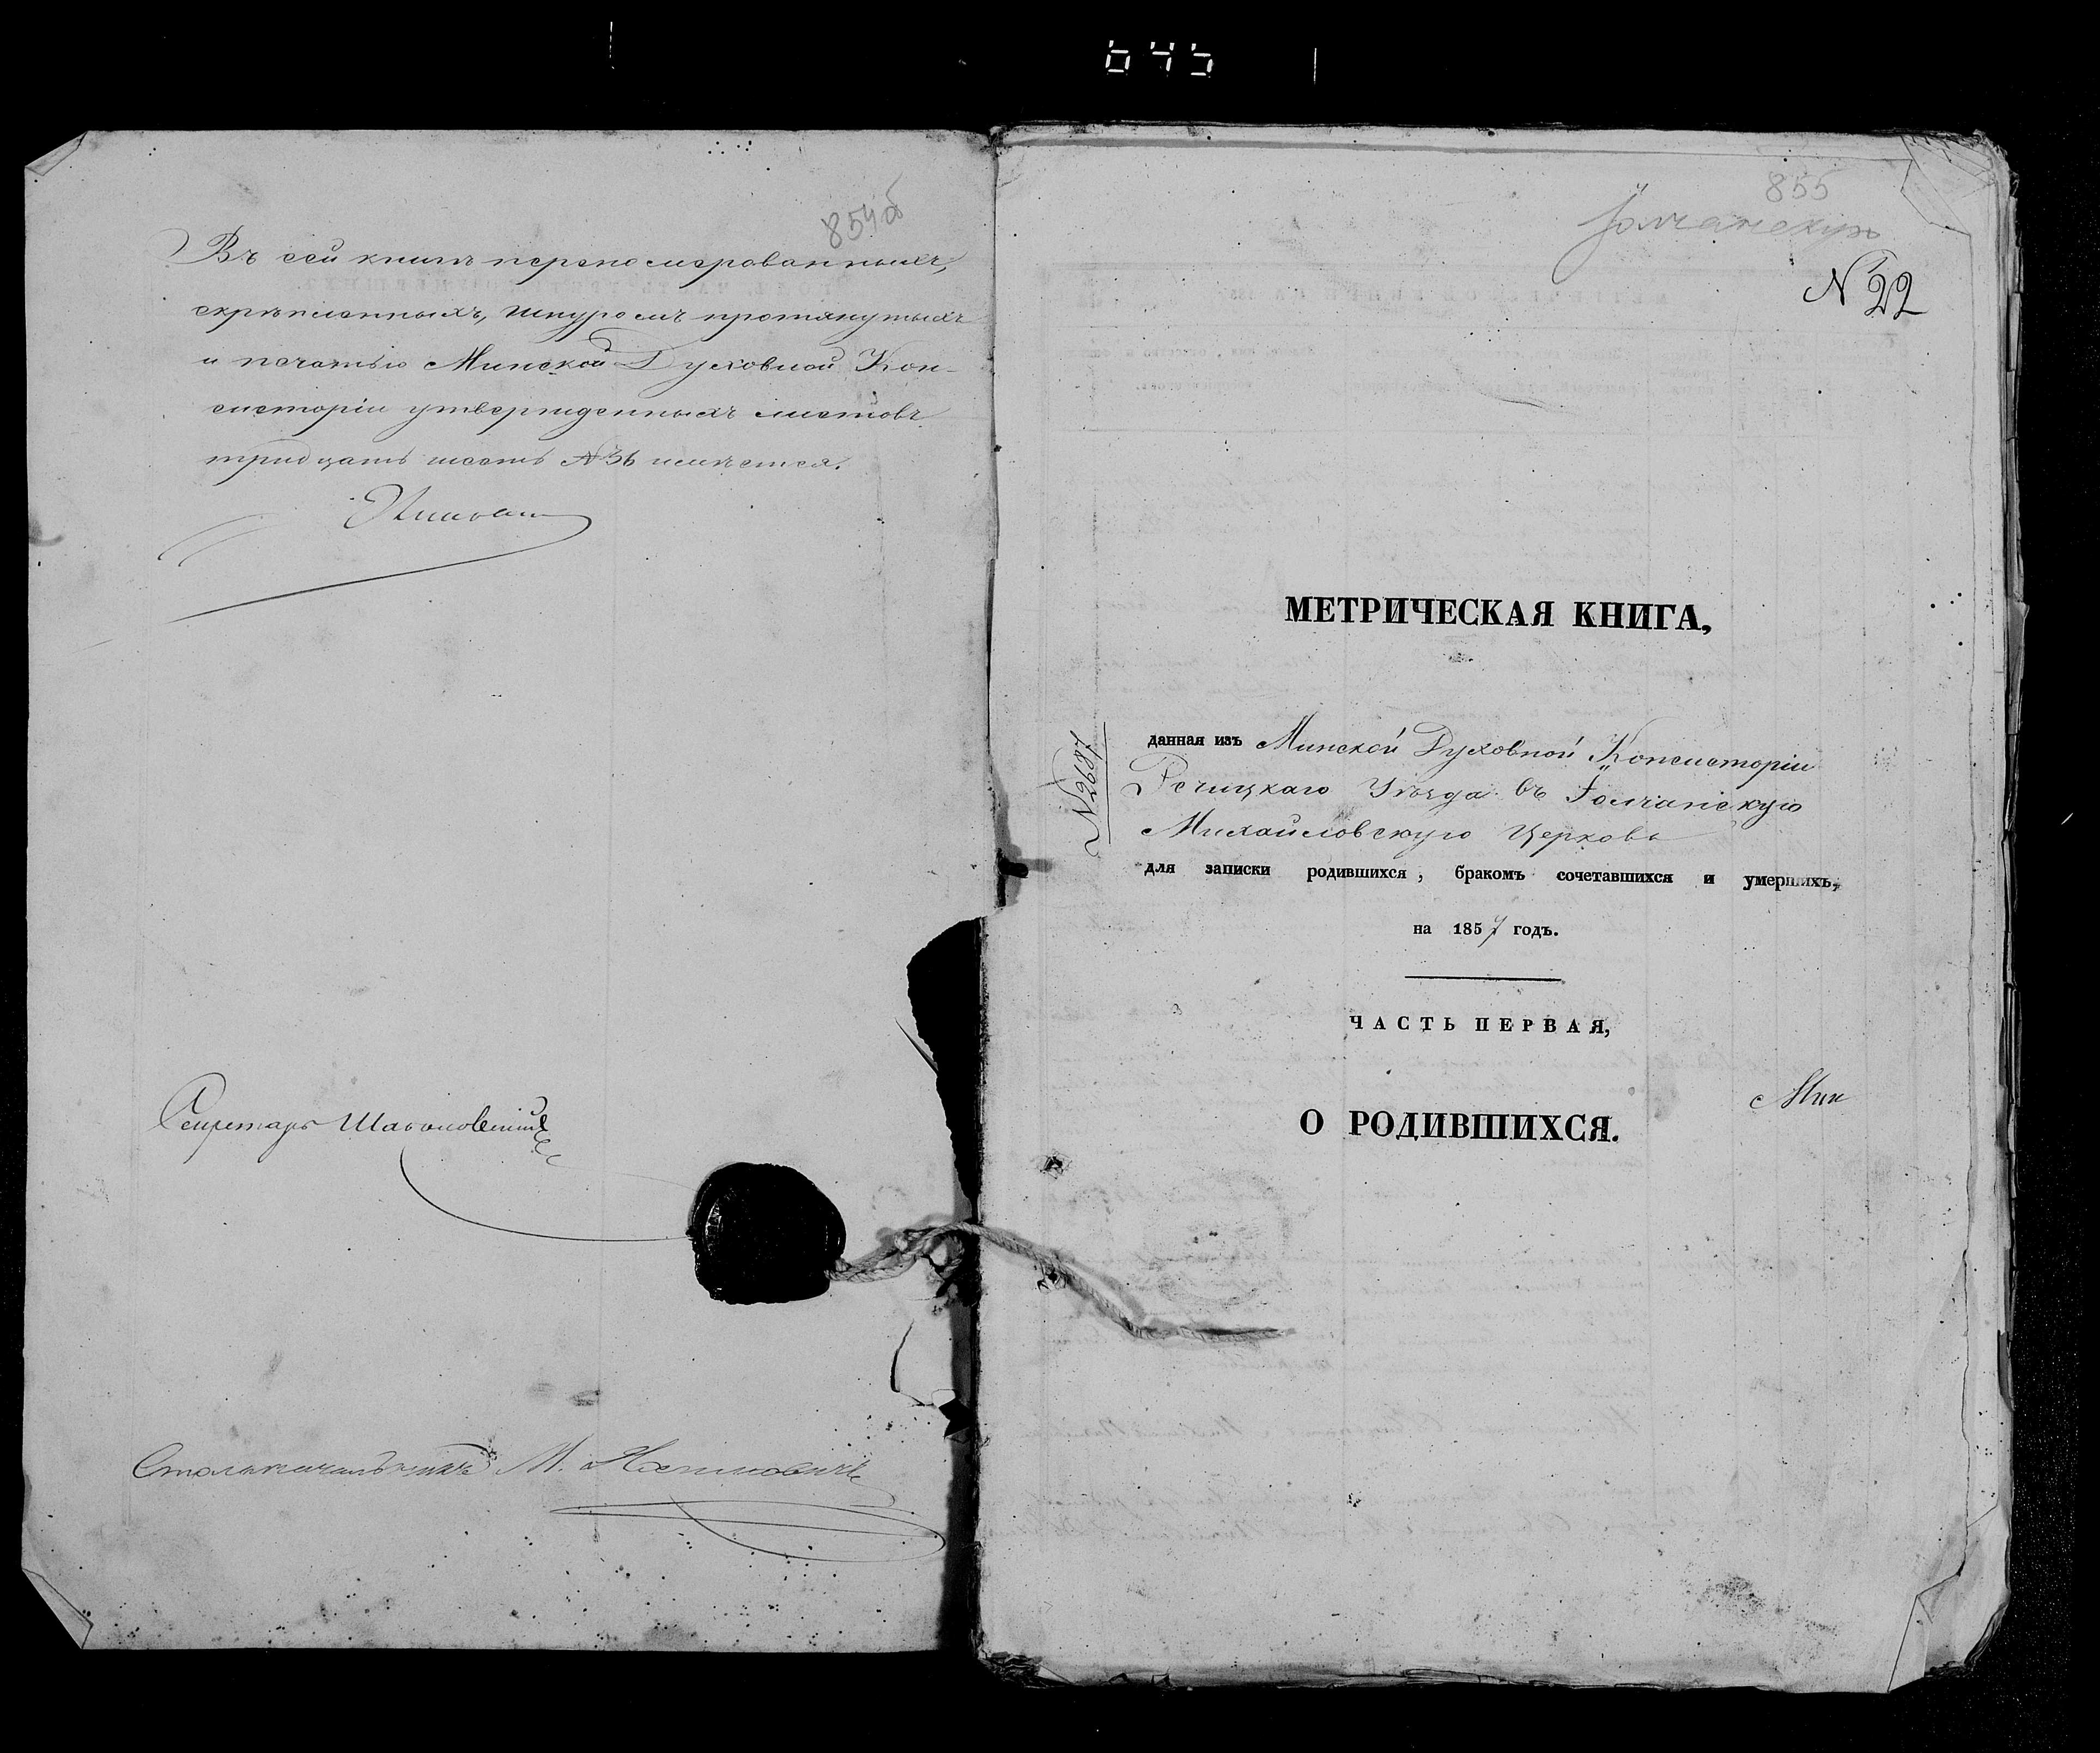 645
854об
Въ сей книгѣ перепомерованныхъ,
скрѣпленныхъ, шнуромъ протянутыхъ
и печатью Минской Духовной Кон-
систоріи утвержденныхъ листовъ
тридцать шесть №36 имѣется.
Секретарь
Столоначальникъ М.
855
Іолчанскую
№ 22
МЕТРИЧЕСКАЯ КНИГА,
№ 2687
данная изъ Минской Духовной Консисторіи
Речицкаго Уѣзда въ Іолчанскую
Михайловскую Церковь
для записки родившихся, бракомъ сочетавшихся и умершихъ,
на 1857 годъ.
ЧАСТЬ ПЕРВАЯ,
Мин
О РОДИВШИХСЯ.